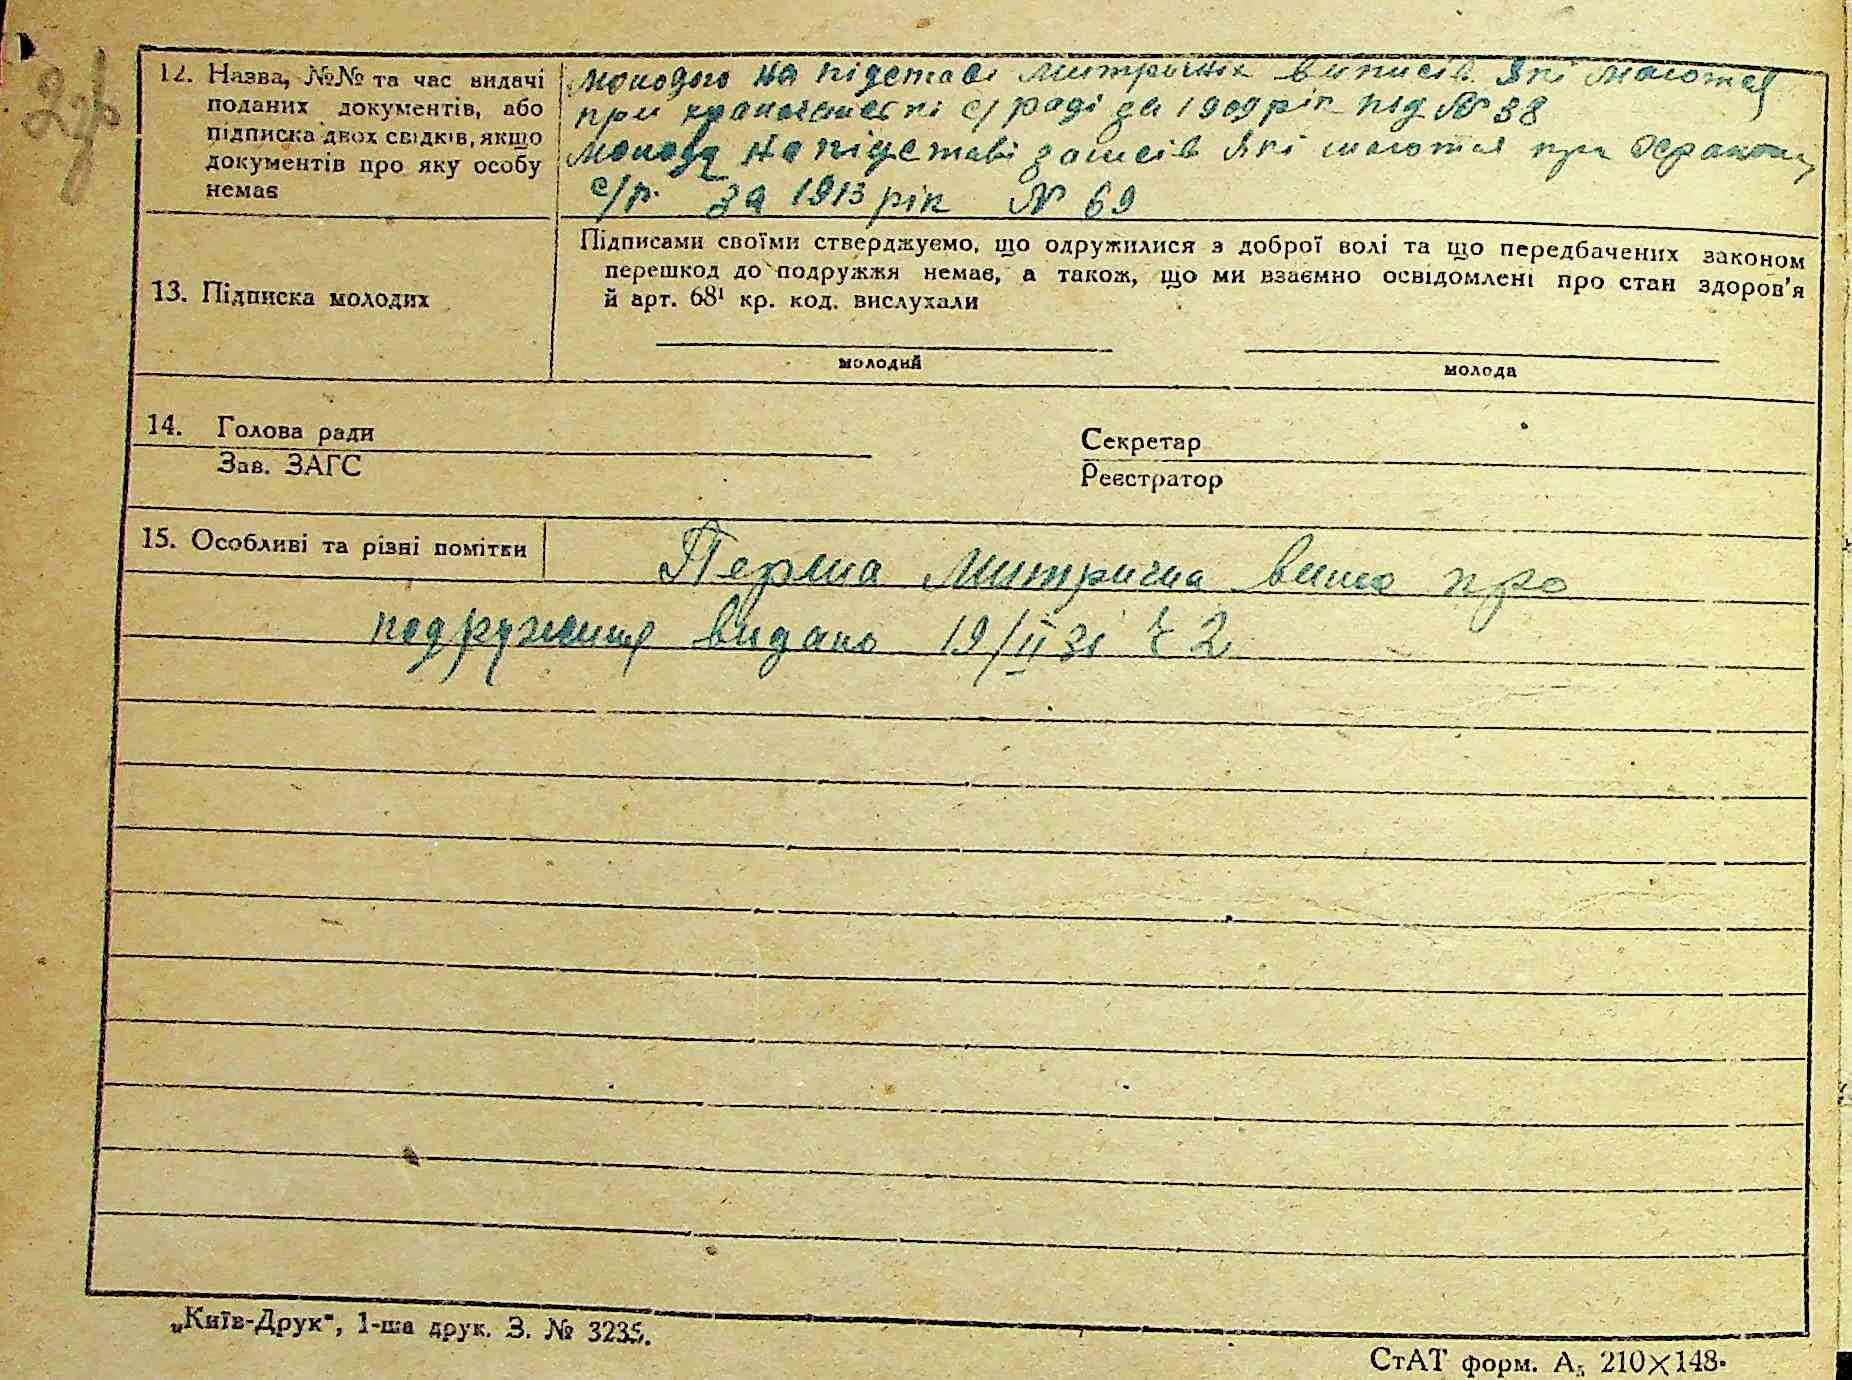 12. Назва, №№ та час видачі
поданих документів, або
підписка двох свідків, якщо
документів про яку особу
немає
молодого на підставі митричніх виписів які маются
при с/раді за 1909 рік під № 38
молода на підставі записів які маются при
с/р. за 1913 рік № 69
13. Підписка молодих
Підписами своїми стверджуємо, що одружилися з доброї волі та що передбачених законом
перешкод до подружжя немає, а також, що ми взаємно освідомлені про стан здоров'я
й арт. 68¹ кр. код. вислухали
молодий
молода
14. Голова ради
Зав. ЗАГС
Секретар
Реєстратор
15. Особливі та різні помітки
Перша митрична про
подружжя видано 19/II 31 2
„Київ-Друк“, 1-ша друк. З. № 3235.
СтАТ форм. А5 210×148.